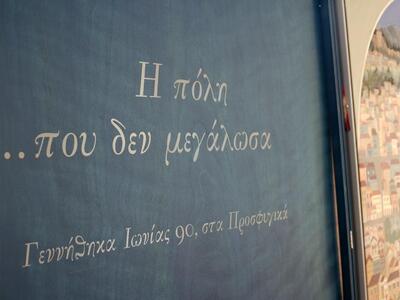 Η πόλη
..που δεν μεγάλωσα
Γεννήθηκα Ιωνίας 90, στα Προσφυγικά